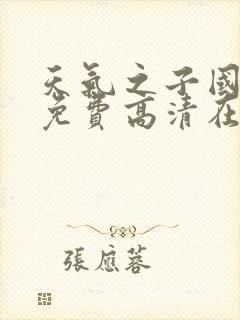 天氣之子國
免費高清在
張應蓉